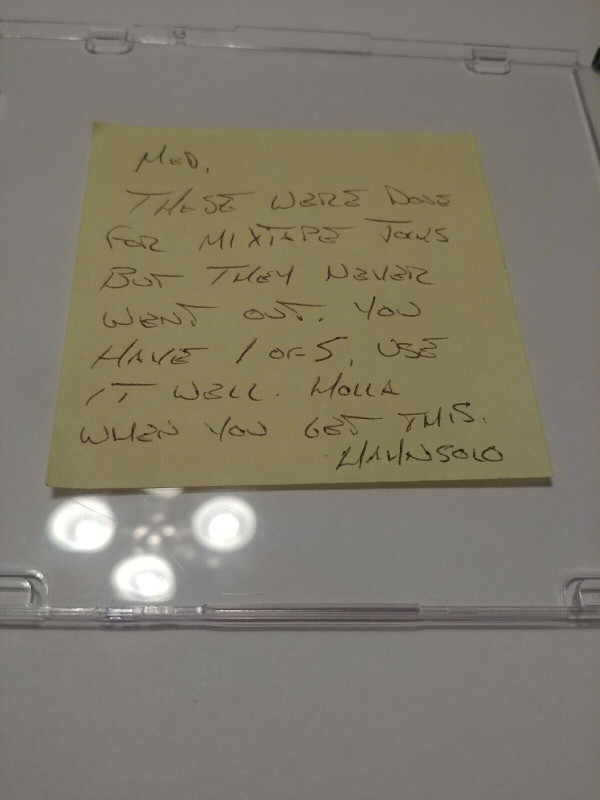 MED,
THESE WERE DONE
FOR MIXTAPE JOCKS
BUT THEY NEVER
WENT OUT. YOU
HAVE 1 OF 5, USE
IT WELL. HOLLA
WHEN YOU GET THIS.
HAHNSOLO